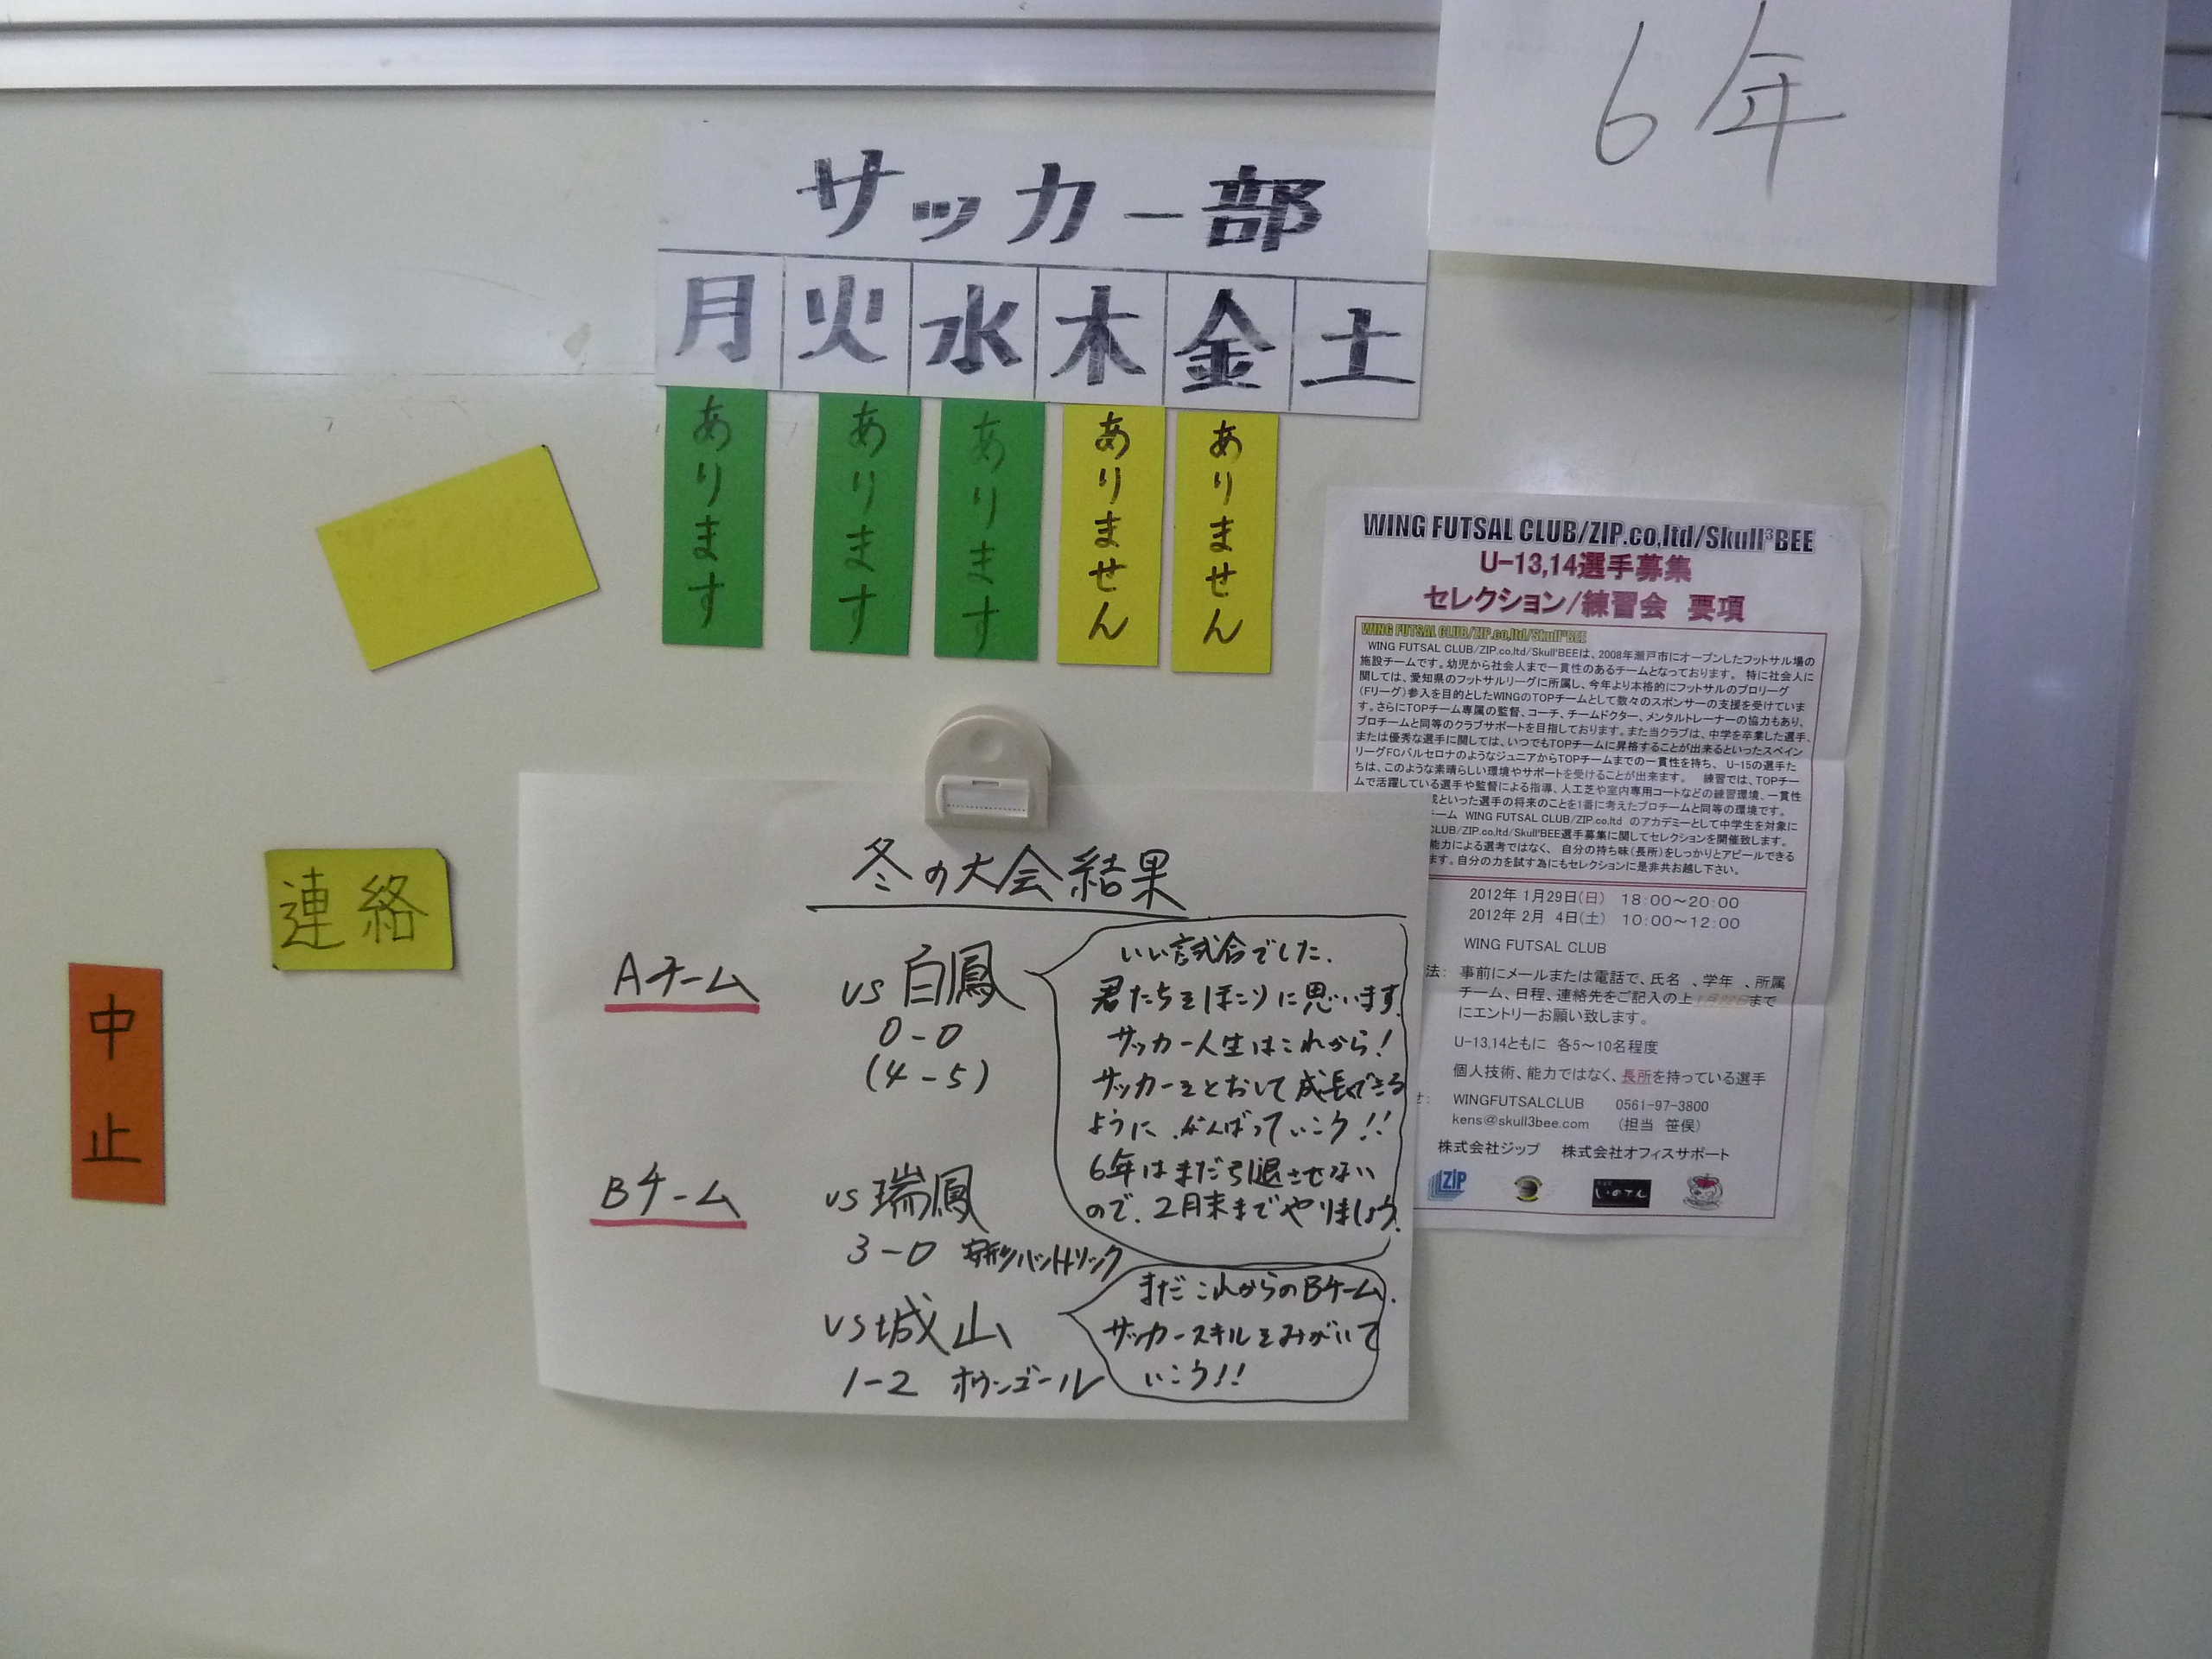 6年
サッカー部
月 火 水 木 金 土
あります
あります
あります
ありません
ありません
連絡
中止
冬の大会結果
Aチーム vs 白鳳
0-0
(4-5)
いい試合でした.
君たちをほこりに思います.
サッカー人生はこれから!
サッカーをとおして成長できる
ように.がんばっていこう!!
6年はまだ引退させない
ので.2月末までやりましょう.
Bチーム vs 瑞鳳
3-0
vs 城山
1-2 オウンゴール
まだこれからのBチーム.
サッカースキルをみがいて
いこう!!
WING FUTSAL CLUB/ZIP.co,ltd/Skull³BEE
U-13,14選手募集
セレクション/練習会 要項
WING FUTSAL CLUB/ZIP.co,ltd/Skull³BEE
WING FUTSAL CLUB/ZIP.co,ltd/Skull³BEEは、2008年瀬戸市にオープンしたフットサル場の
施設チームです。幼児から社会人まで一貫性のあるチームとなっております。 特に社会人に
関しては、愛知県のフットサルリーグに所属し、今年より本格的にフットサルのプロリーグ
(Fリーグ)参入を目的としたWINGのTOPチームとして数々のスポンサーの支援を受けていま
す。さらにTOPチーム専属の監督、コーチ、チームドクター、メンタルトレーナーの協力もあり、
プロチームと同等のクラブサポートを目指しております。また当クラブは、中学を卒業した選手、
または優秀な選手に関しては、いつでもTOPチームに昇格することが出来るといったスペイン
リーグFCバルセロナのようなジュニアからTOPチームまでの一貫性を持ち、 U-15の選手た
ちは、このような素晴らしい環境やサポートを受けることが出来ます。 練習では、TOPチー
ムで活躍している選手や監督による指導、人工芝や室内専用コートなどの練習環境、一貫性
成といった選手の将来のことを1番に考えたプロチームと同等の環境です。
チーム WING FUTSAL CLUB/ZIP.co,ltd のアカデミーとして中学生を対象に
CLUB/ZIP.co,ltd/Skull³BEE選手募集に関してセレクションを開催致します。
能力による選考ではなく、 自分の持ち味(長所)をしっかりとアピールできる
ます。自分の力を試す為にもセレクションに是非共お越し下さい。
2012年 1月29日(日) 18:00~20:00
2012年 2月 4日(土) 10:00~12:00
WING FUTSAL CLUB
法: 事前にメールまたは電話で、氏名 、学年 、所属
チーム、日程、連絡先をご記入の上 まで
にエントリーお願い致します。
U-13,14ともに 各5~10名程度
個人技術、能力ではなく、長所を持っている選手
せ: WINGFUTSALCLUB 0561-97-3800
kens@skull3bee.com (担当 笹俣)
株式会社ジップ 株式会社オフィスサポート
ZIP
いのてん